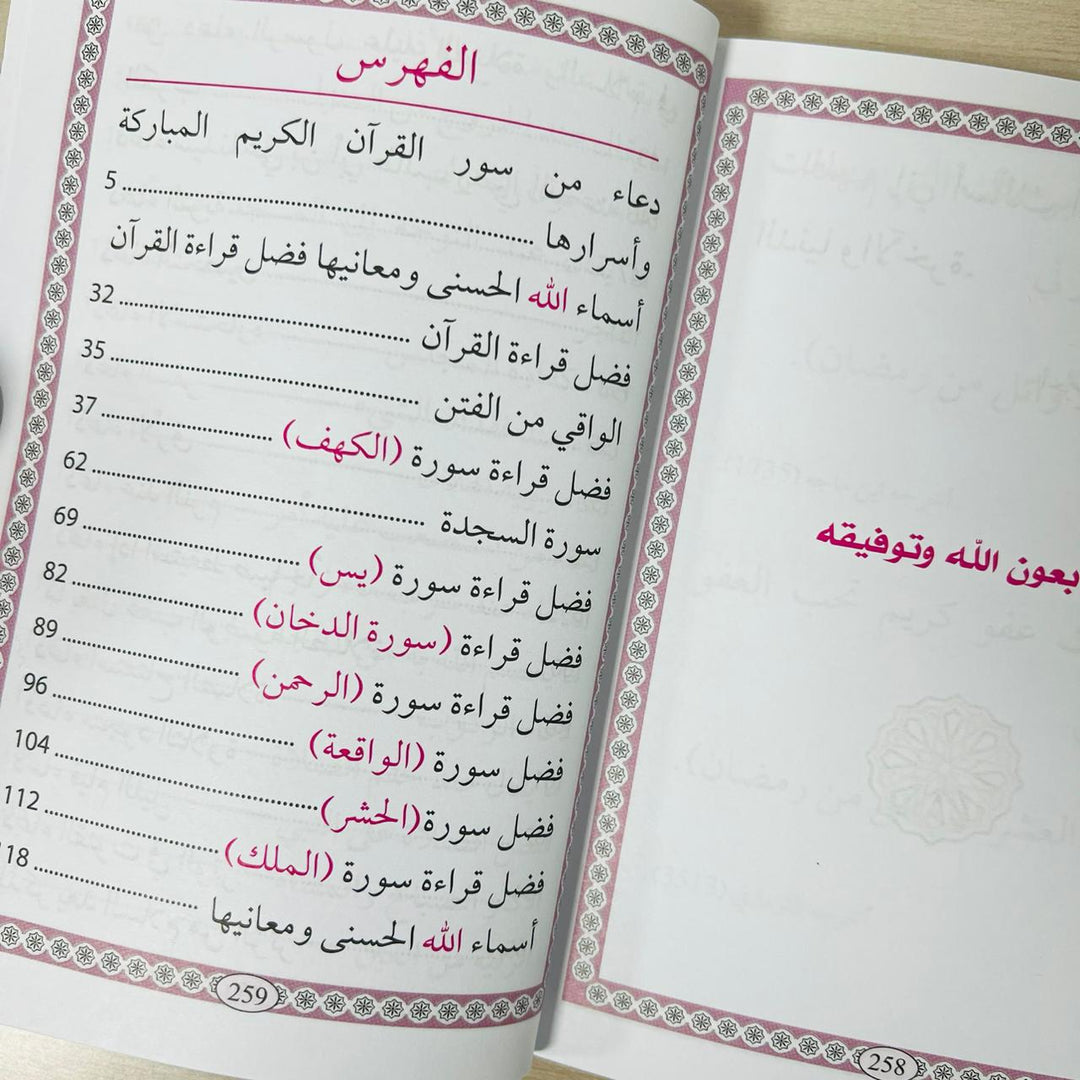 بعون الله وتوفيقه
258
الفهرس
دعاء من سور القرآن الكريم المباركة
وأسرارها ........ 5
أسماء الله الحسنى ومعانيها فضل قراءة القرآن
فضل قراءة القرآن ........ 32
الواقي من الفتن ........ 35
فضل قراءة سورة (الكهف) ........ 37
سورة السجدة ........ 62
فضل قراءة سورة (يس) ........ 69
فضل قراءة (سورة الدخان) ........ 82
فضل قراءة سورة (الرحمن) ........ 89
فضل سورة (الواقعة) ........ 96
فضل سورة (الحشر) ........ 104
فضل قراءة سورة (الملك) ........ 112
أسماء الله الحسنى ومعانيها ........ 118
259